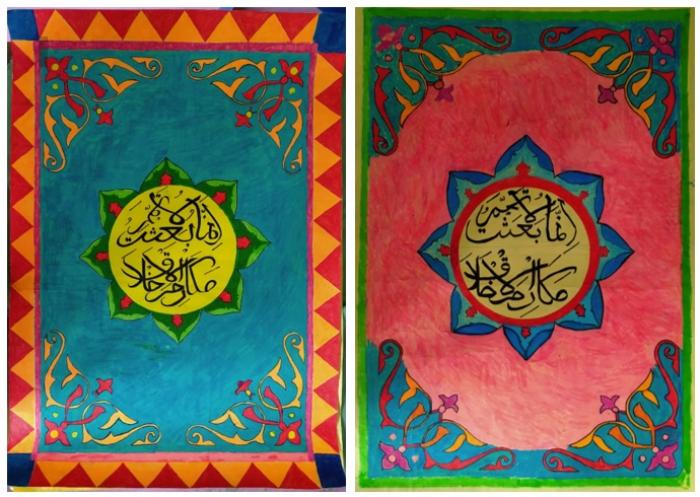 إنما بعثت لأتمم
مكارم الأخلاق
إنما بعثت لأتمم
مكارم الأخلاق